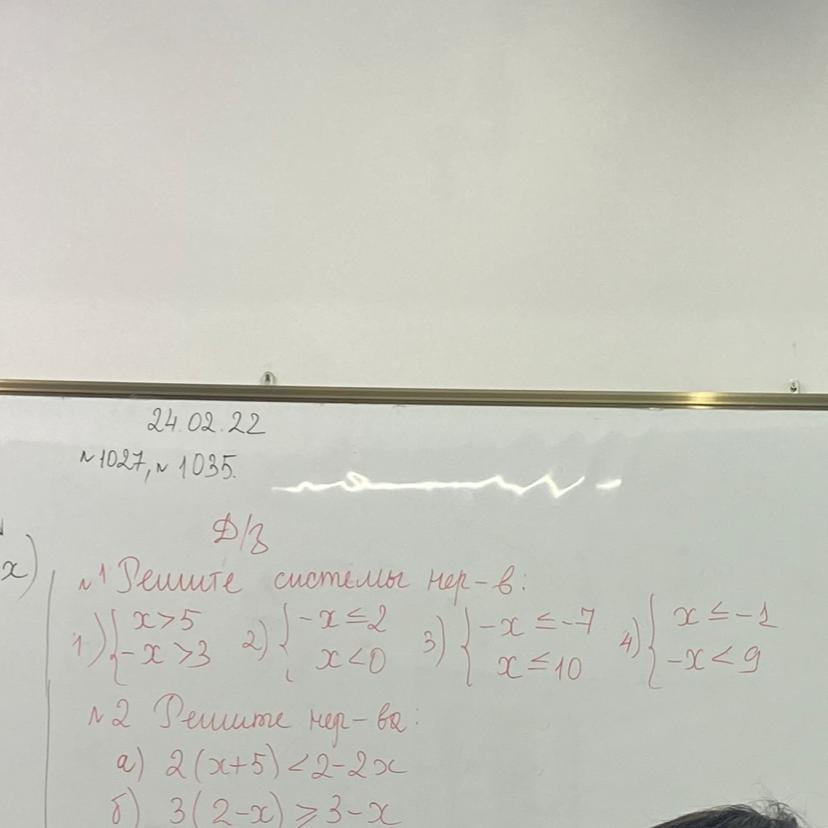 24.02.22
№1027, № 1035.
x)
Д/з
№1 Решите системы нер-в:
1) { x>5 2) { -x ≤ 2 3) { -x ≤ -7 4) { x ≤ -1
-x >3 x<0 x ≤10 -x < 9
№2 Решите нер-ва:
а) 2(x+5) <2-2x
б) 3(2-x) ≥ 3-x